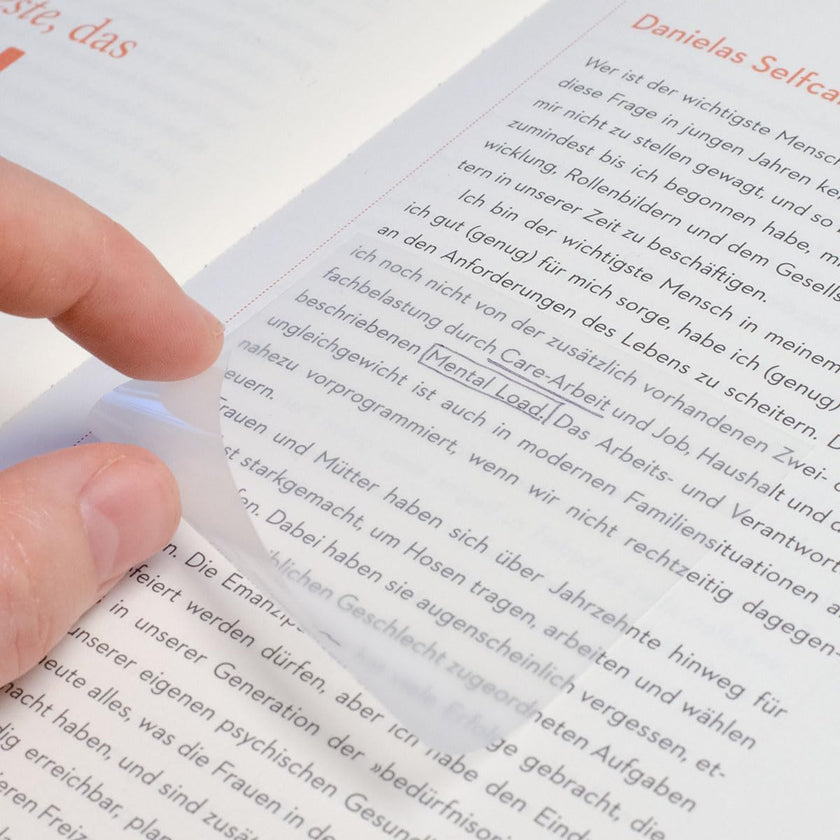 ste, das
Danielas Selfca
Wer ist der wichtigste Mensch
diese Frage in jungen Jahren
mir nicht zu stellen gewagt, und so
zumindest bis ich begonnen habe,
wicklung, Rollenbildern und dem Gesells
tern in unserer Zeit zu beschäftigen.
Ich bin der wichtigste Mensch in meinem
ich gut (genug) für mich sorge, habe ich (genug)
an den Anforderungen des Lebens zu scheitern.
ich noch nicht von der zusätzlich vorhandenen Zwei-
fachbelastung durch Care-Arbeit und Job, Haushalt und
beschriebenen Mental Load. Das Arbeits- und Verantwort
ungleichgewicht ist auch in modernen Familiensituationen
nahezu vorprogrammiert, wenn wir nicht rechtzeitig dagegen-
euern.
Frauen und Mütter haben sich über Jahrzehnte hinweg für
st starkgemacht, um Hosen tragen, arbeiten und wählen
en. Dabei haben sie augenscheinlich vergessen, et-
blichen Geschlecht zugeordneten Aufgaben
ge gebracht, die
n. Die Emanzip
efeiert werden dürfen, aber ich habe den Eind
in unserer Generation der »bedürfnisor
unserer eigenen psychischen Gesun
eute alles, was die Frauen in de
macht haben, und sind zusät
dig erreichbar, plan
eren Freiz